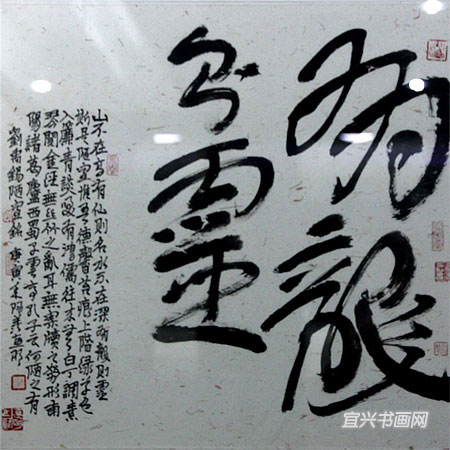 有龍
則靈
山不在高有仙則名水不在深有龍則靈
斯是陋室惟吾德馨苔痕上階绿草色
入簾青談笑有鴻儒往来無白丁調素
琴閱金经無丝竹之亂耳無案牘之勞形南
陽諸葛廬西蜀子雲亭孔子云何陋之有
劉禹錫陋室銘 庚寅年陽羨
宜兴书画网